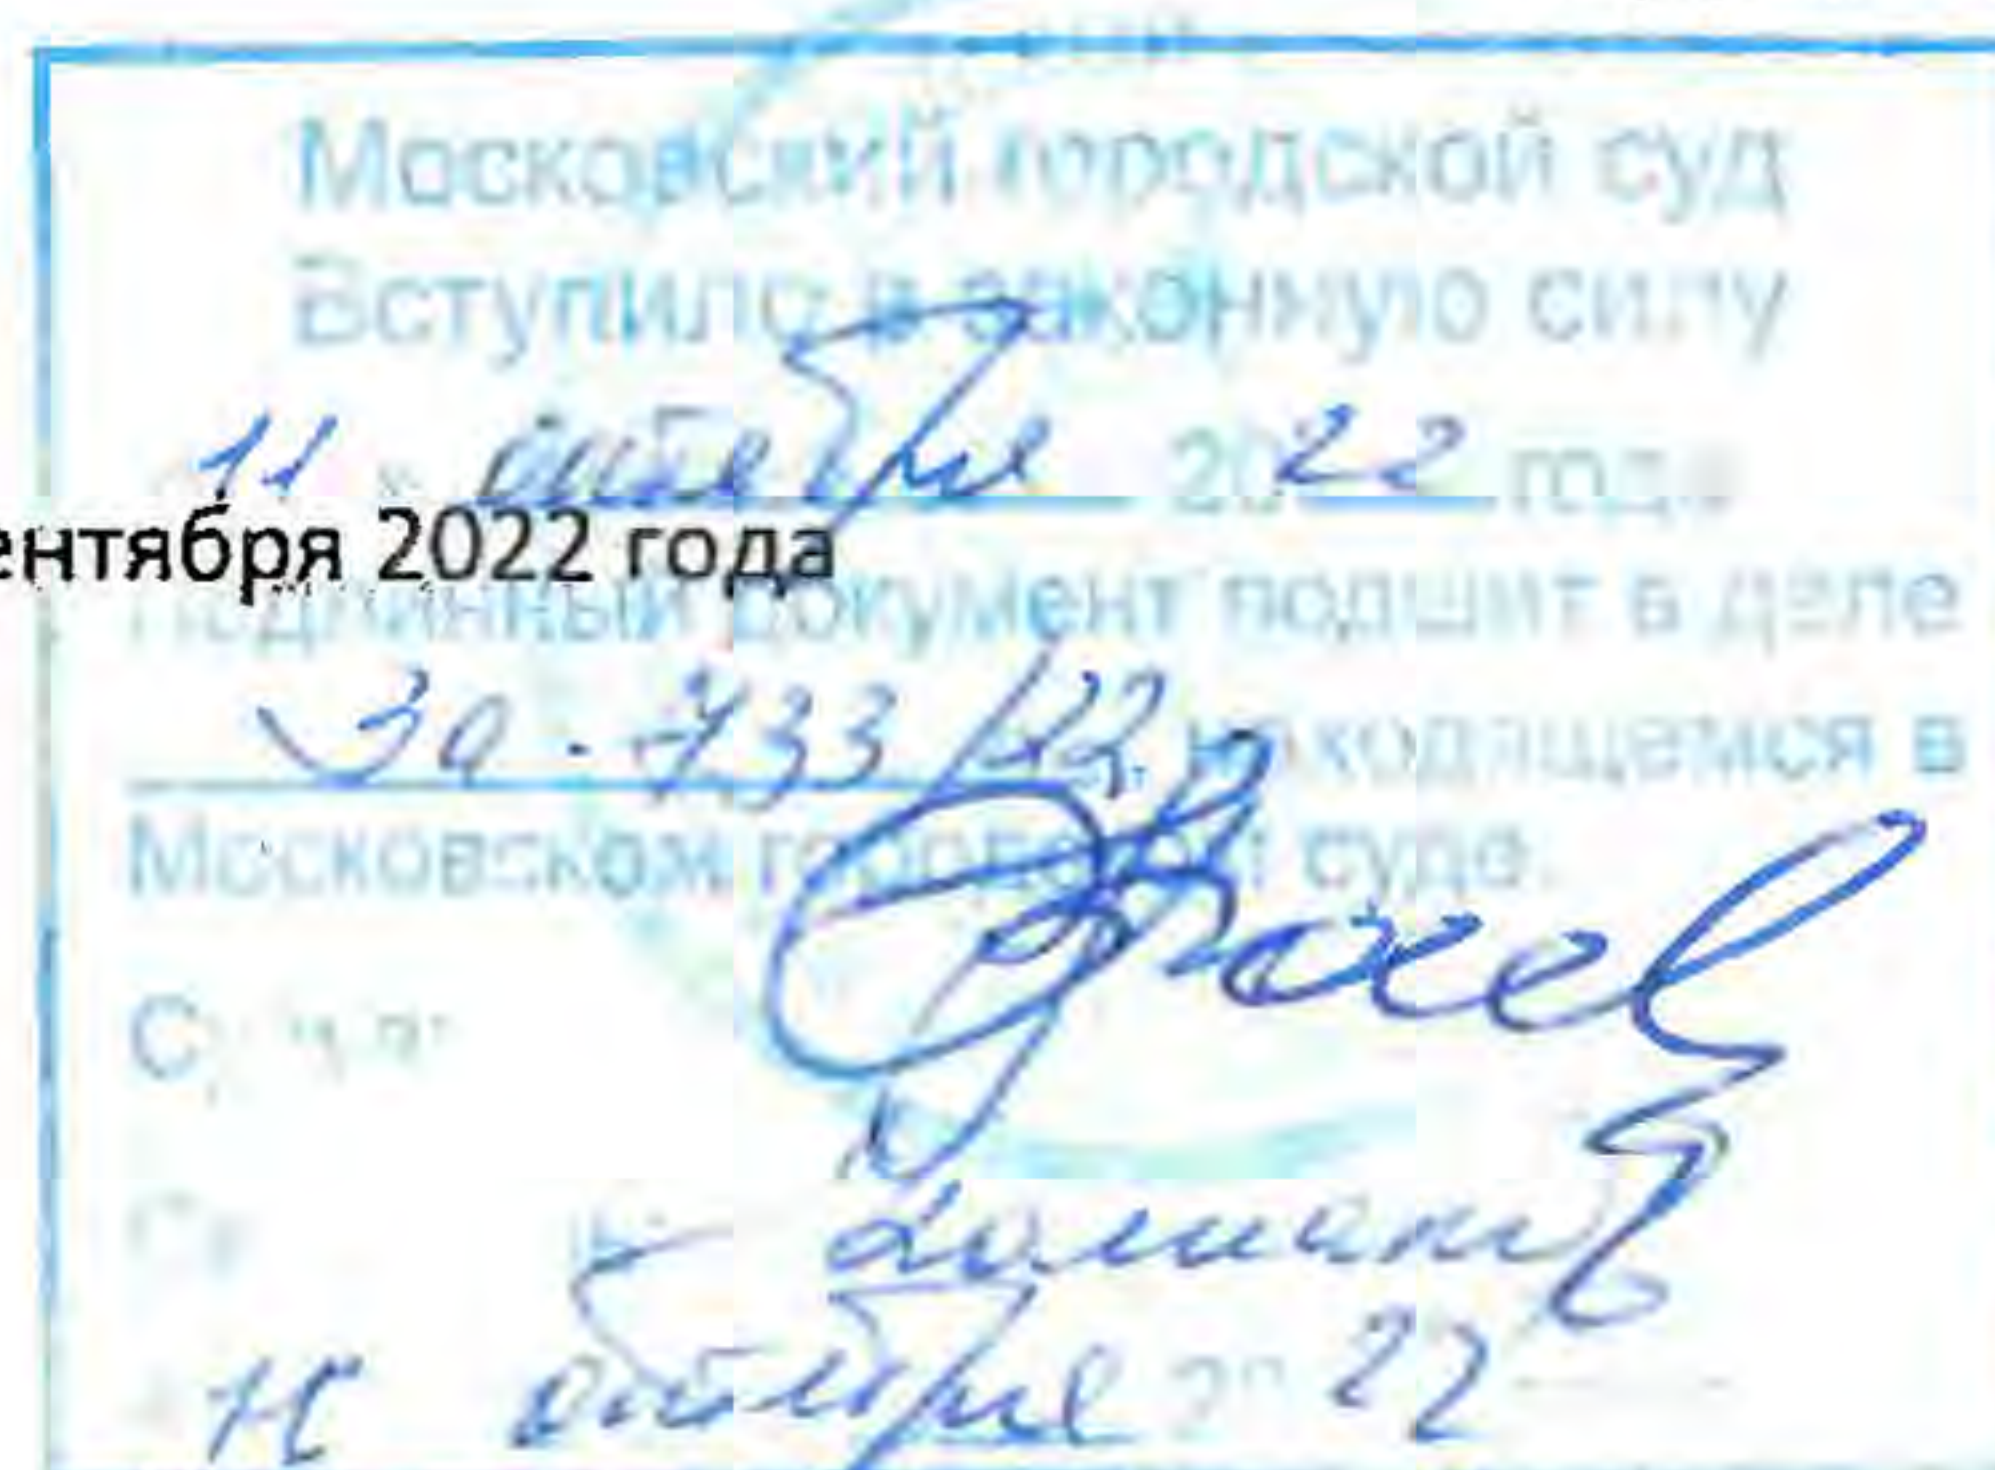 Московский городской суд
Вступило в законную силу
11 » октября 2022 года
ентября 2022 года
Подлинный документ подшит в деле
3а-733/22 находящемся в
Московском городском суде.
Судья
октября 2022